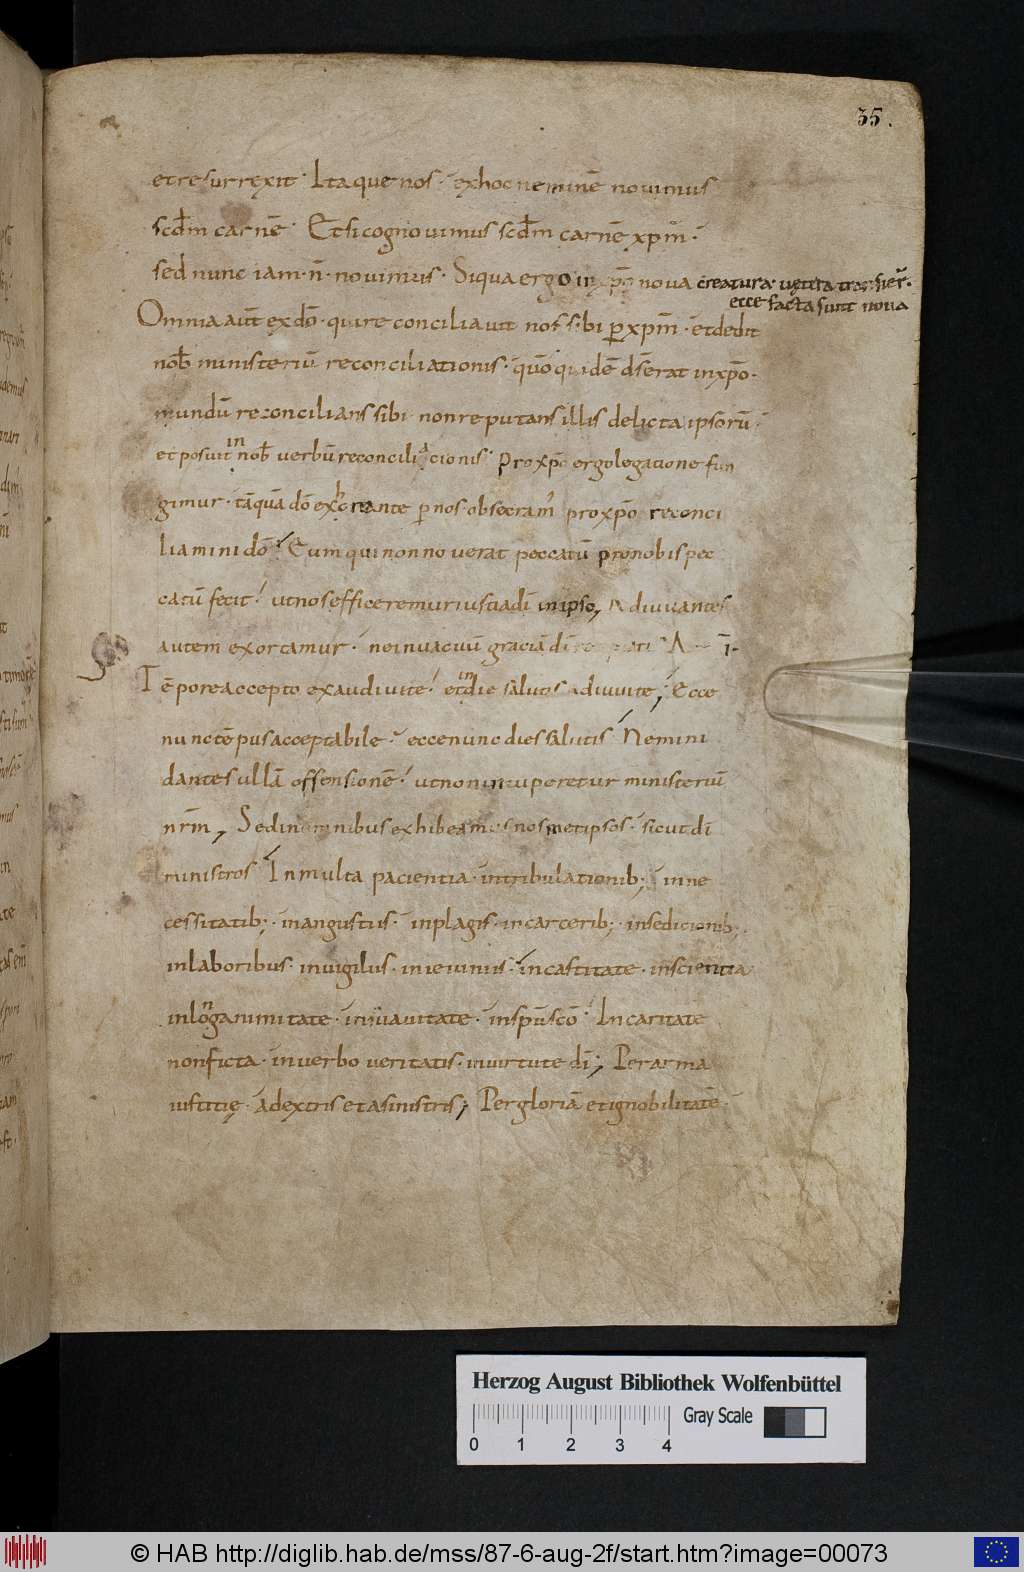 35.
et resurrexit · Itaque nos · exhoc neminē novimus
scdm carnē · Et si cognovimus scdm carnē xpm̄ ·
sed nunc iam · n̄ · novimus · Siqua ergo in xpō nova creatura · vetera transier̄ ·
ecce facta sunt nova
Omnia aut̄ ex dō · qui reconciliavit nos sibi p xpm̄ · et dedit
nob̄ ministeriū reconciliationis · qūo quidē ds̄ erat in xpō ·
mundū reconcilians sibi · non reputans illis delicta ipsorū ·
et posuit in nob̄ verbū reconciliacionis · Pro xpō ergo legatione fun
gimur · tāquā dō exhortante p nos · obsecram' pro xpō reconci
liamini dō · Eum qui non noverat peccatū pro nobis pec
catū fecit · ut nos efficeremur iusticia dī in ipso, Adiuvantes
autem exortamur · ne in vacuū graciā dī
Tēpore accepto exaudivi te · et in die salutis adiuvi te, Ecce
nunc tēpus acceptabile · ecce nunc dies salutis Nemini
dantes ullā offensionē · ut non vituperetur ministeriū
nrm̄, Sed in omnibus exhibeamus nosmetipsos · sicut dī
ministros In multa paciencia · in tribulationib; in ne
cessitatib; · in angustiis · in plagis · in carcerib; · in sedicionib;
in laboribus · in vigiliis · in ieiuniis · in castitate · in scientia
in longanimitate · in suavitate · in spū scō · In caritate
non ficta · in verbo veritatis · in virtute dī; Per arma
iustitię · A dextris et a sinistris; Per gloriā et ignobilitatē ·
Herzog August Bibliothek Wolfenbüttel
Gray Scale
0 1 2 3 4
© HAB http://diglib.hab.de/mss/87-6-aug-2f/start.htm?image=00073